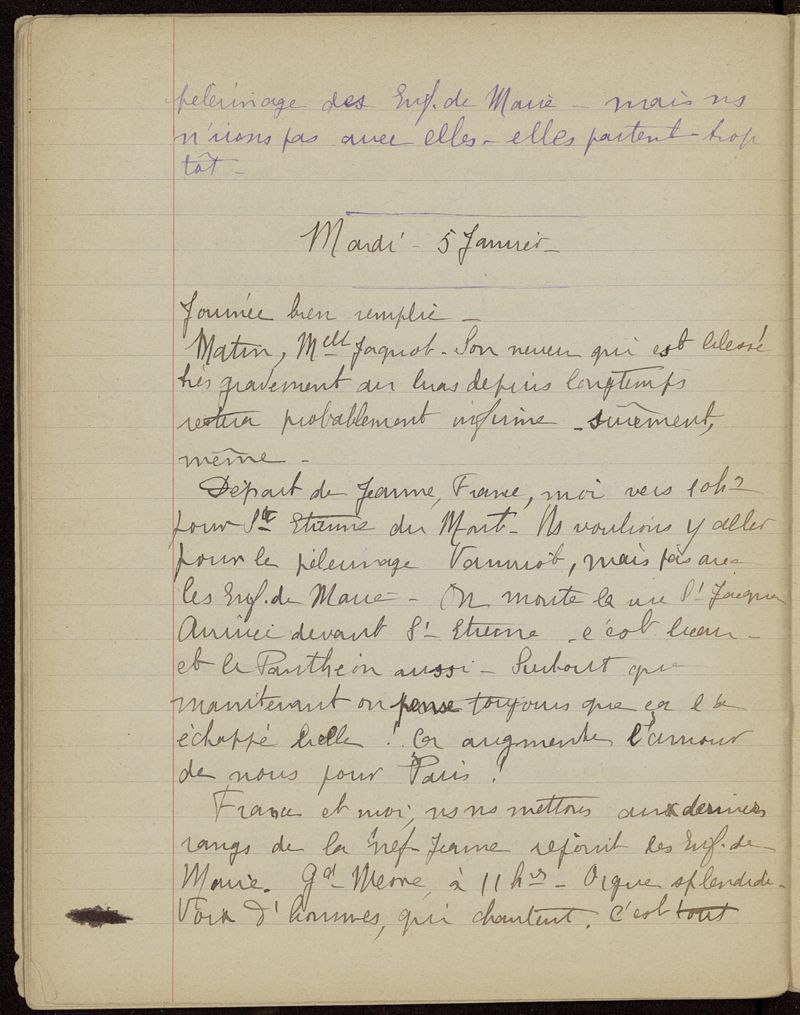 pelerinage des Enf. de Marie - mais ns
n'irons pas avec elles - elles partent - trop
tôt -
Mardi - 5 Janvier -
Journée bien remplie -
Matin, Melle Jaquot - Son neveu qui est blessé
très gravement au bras depuis longtemps
restera probablement infirme - sûrement,
même -
Départ de Jeanne, France, moi vers 10h
pour St Etienne du Mont - Ns voulions y aller
pour le pèlerinage, mais pas avec
les Enf. de Marie - On monte la rue St Jacques
Arrivée devant St Etienne - c'est beau -
et le Panthéon aussi - Surtout que
maintenant on pense toujours que ça l'a
échappé belle ! Ça augmente l'amour
de nous pour Paris !
France et moi, ns ns mettons aux derniers
rangs de la nef - Jeanne rejoint les Enf. de
Marie. Gd Messe, à 11 hrs - Orgue splendide -
Voix d'hommes, qui chantent. C'est tout